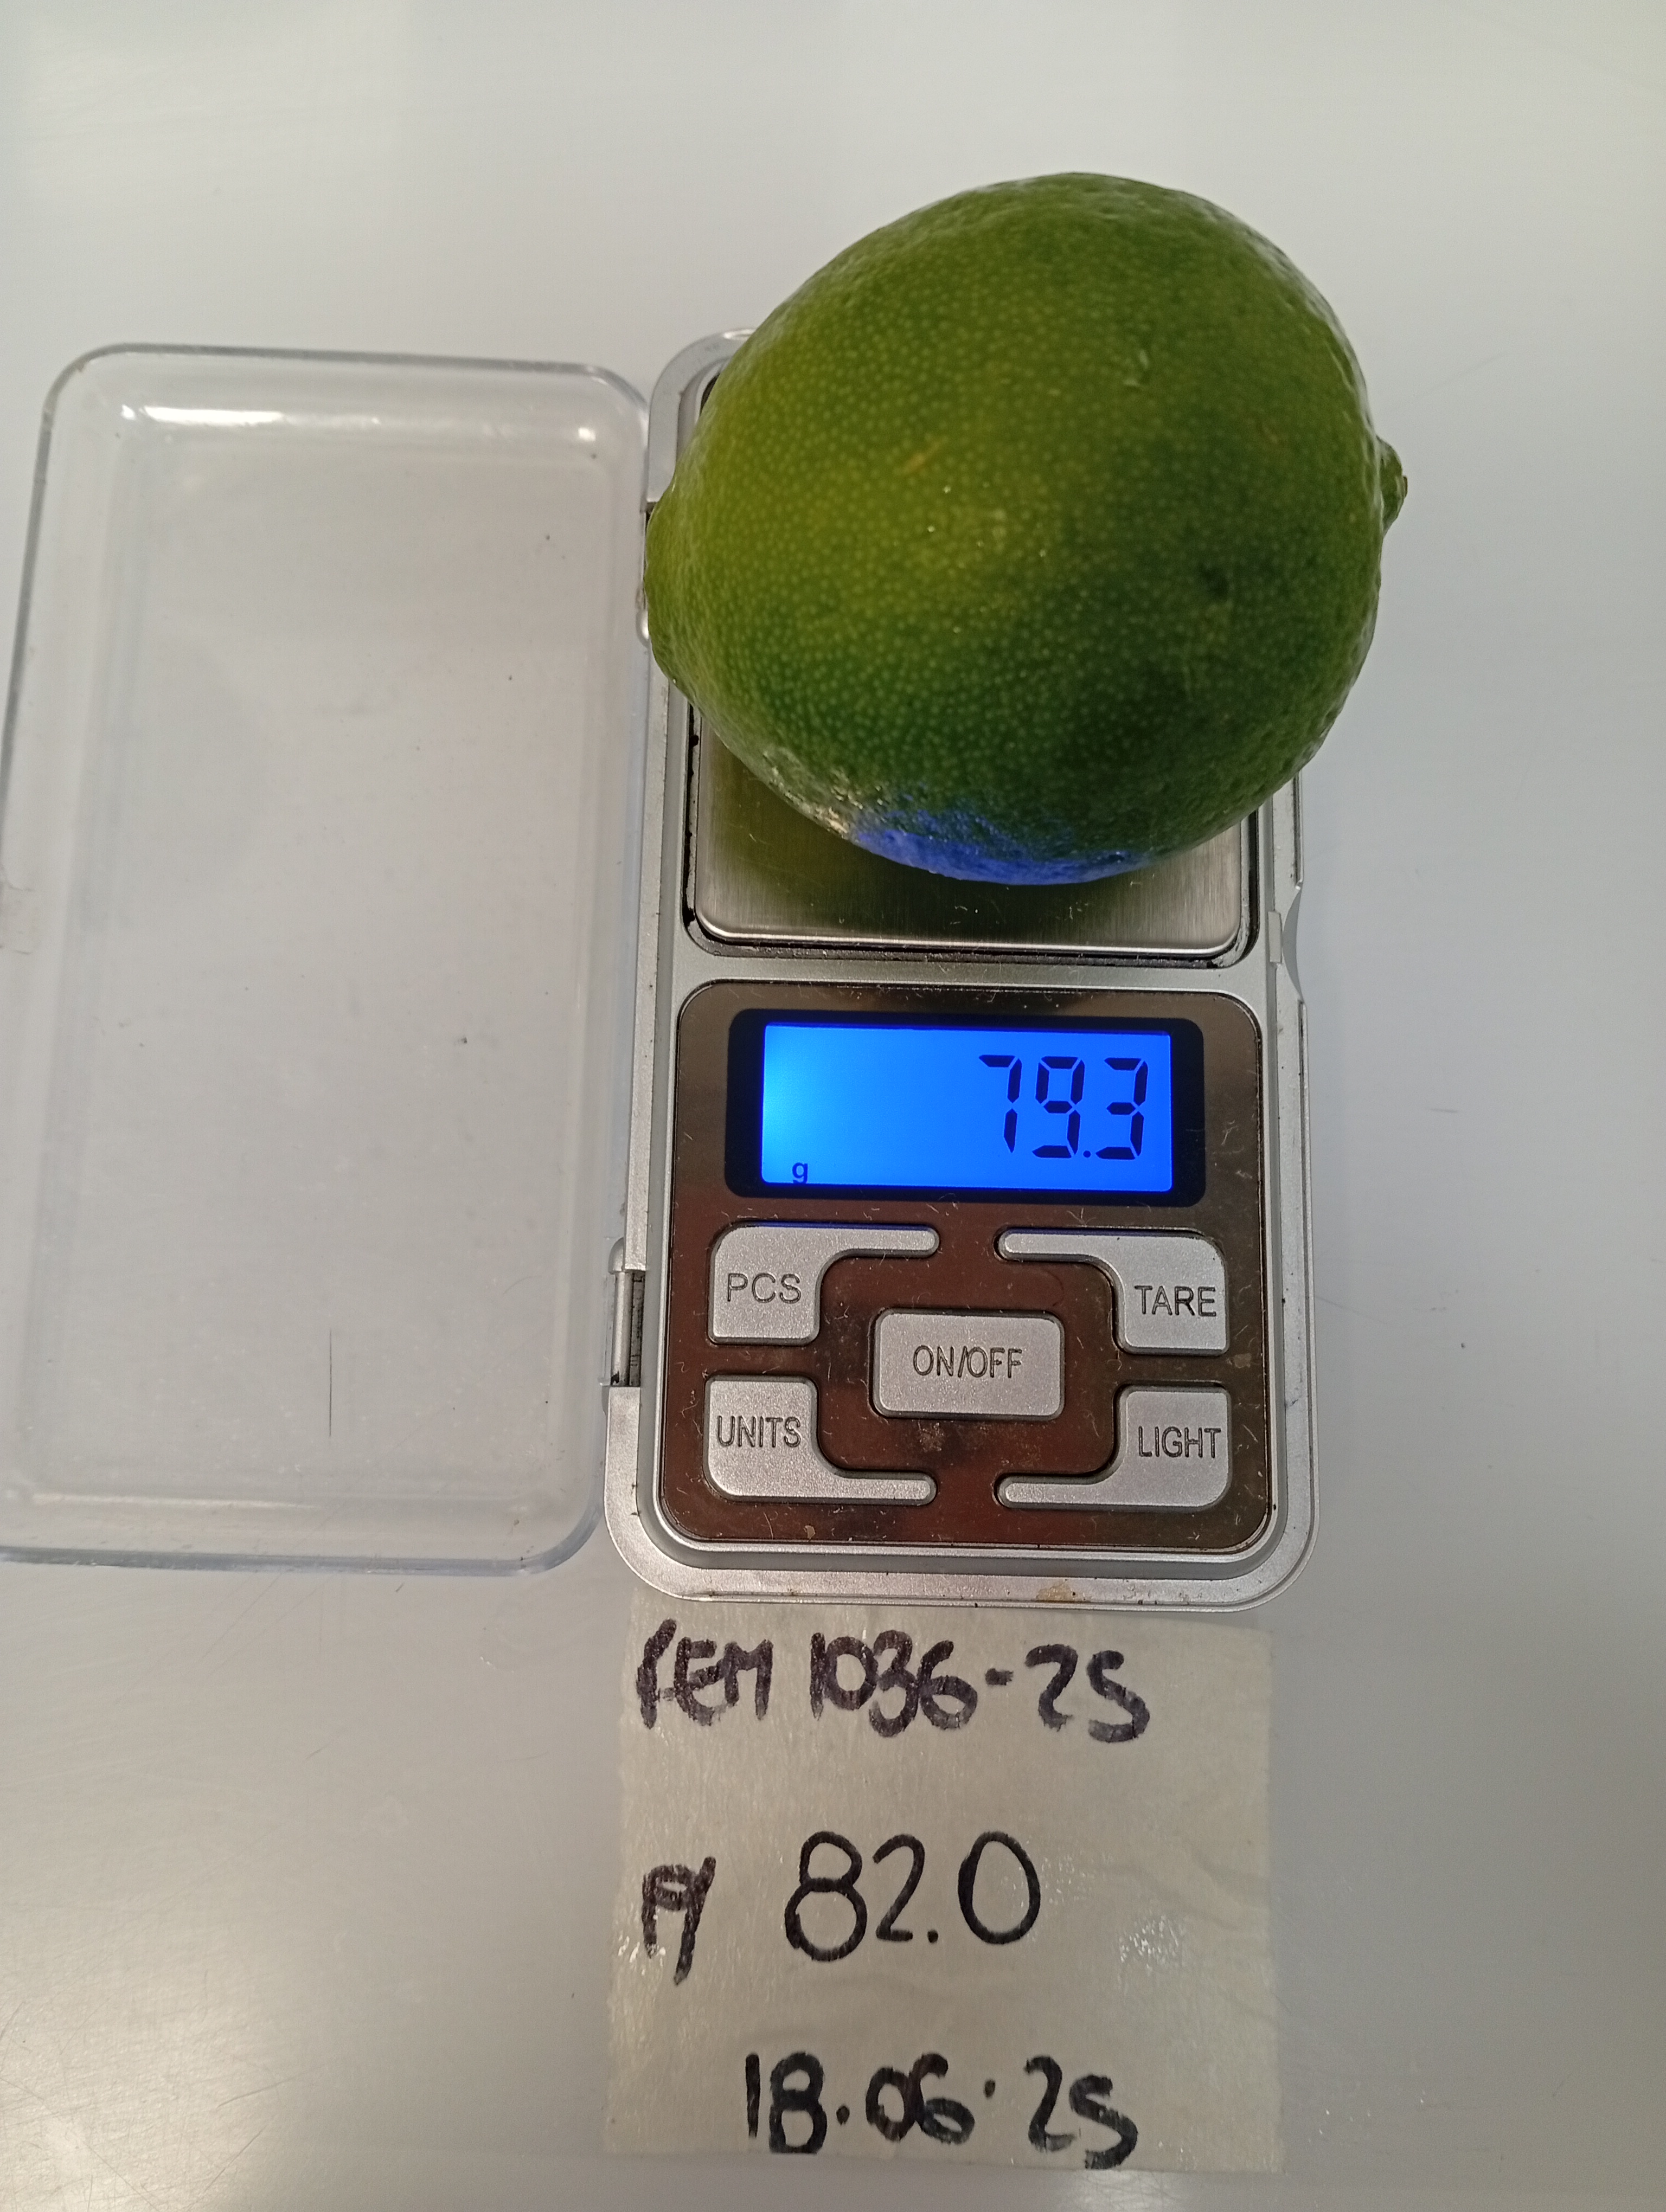 79.3
g
PCS
TARE
ON/OFF
UNITS
LIGHT
FEM 1036-25
82.0
18.06.25